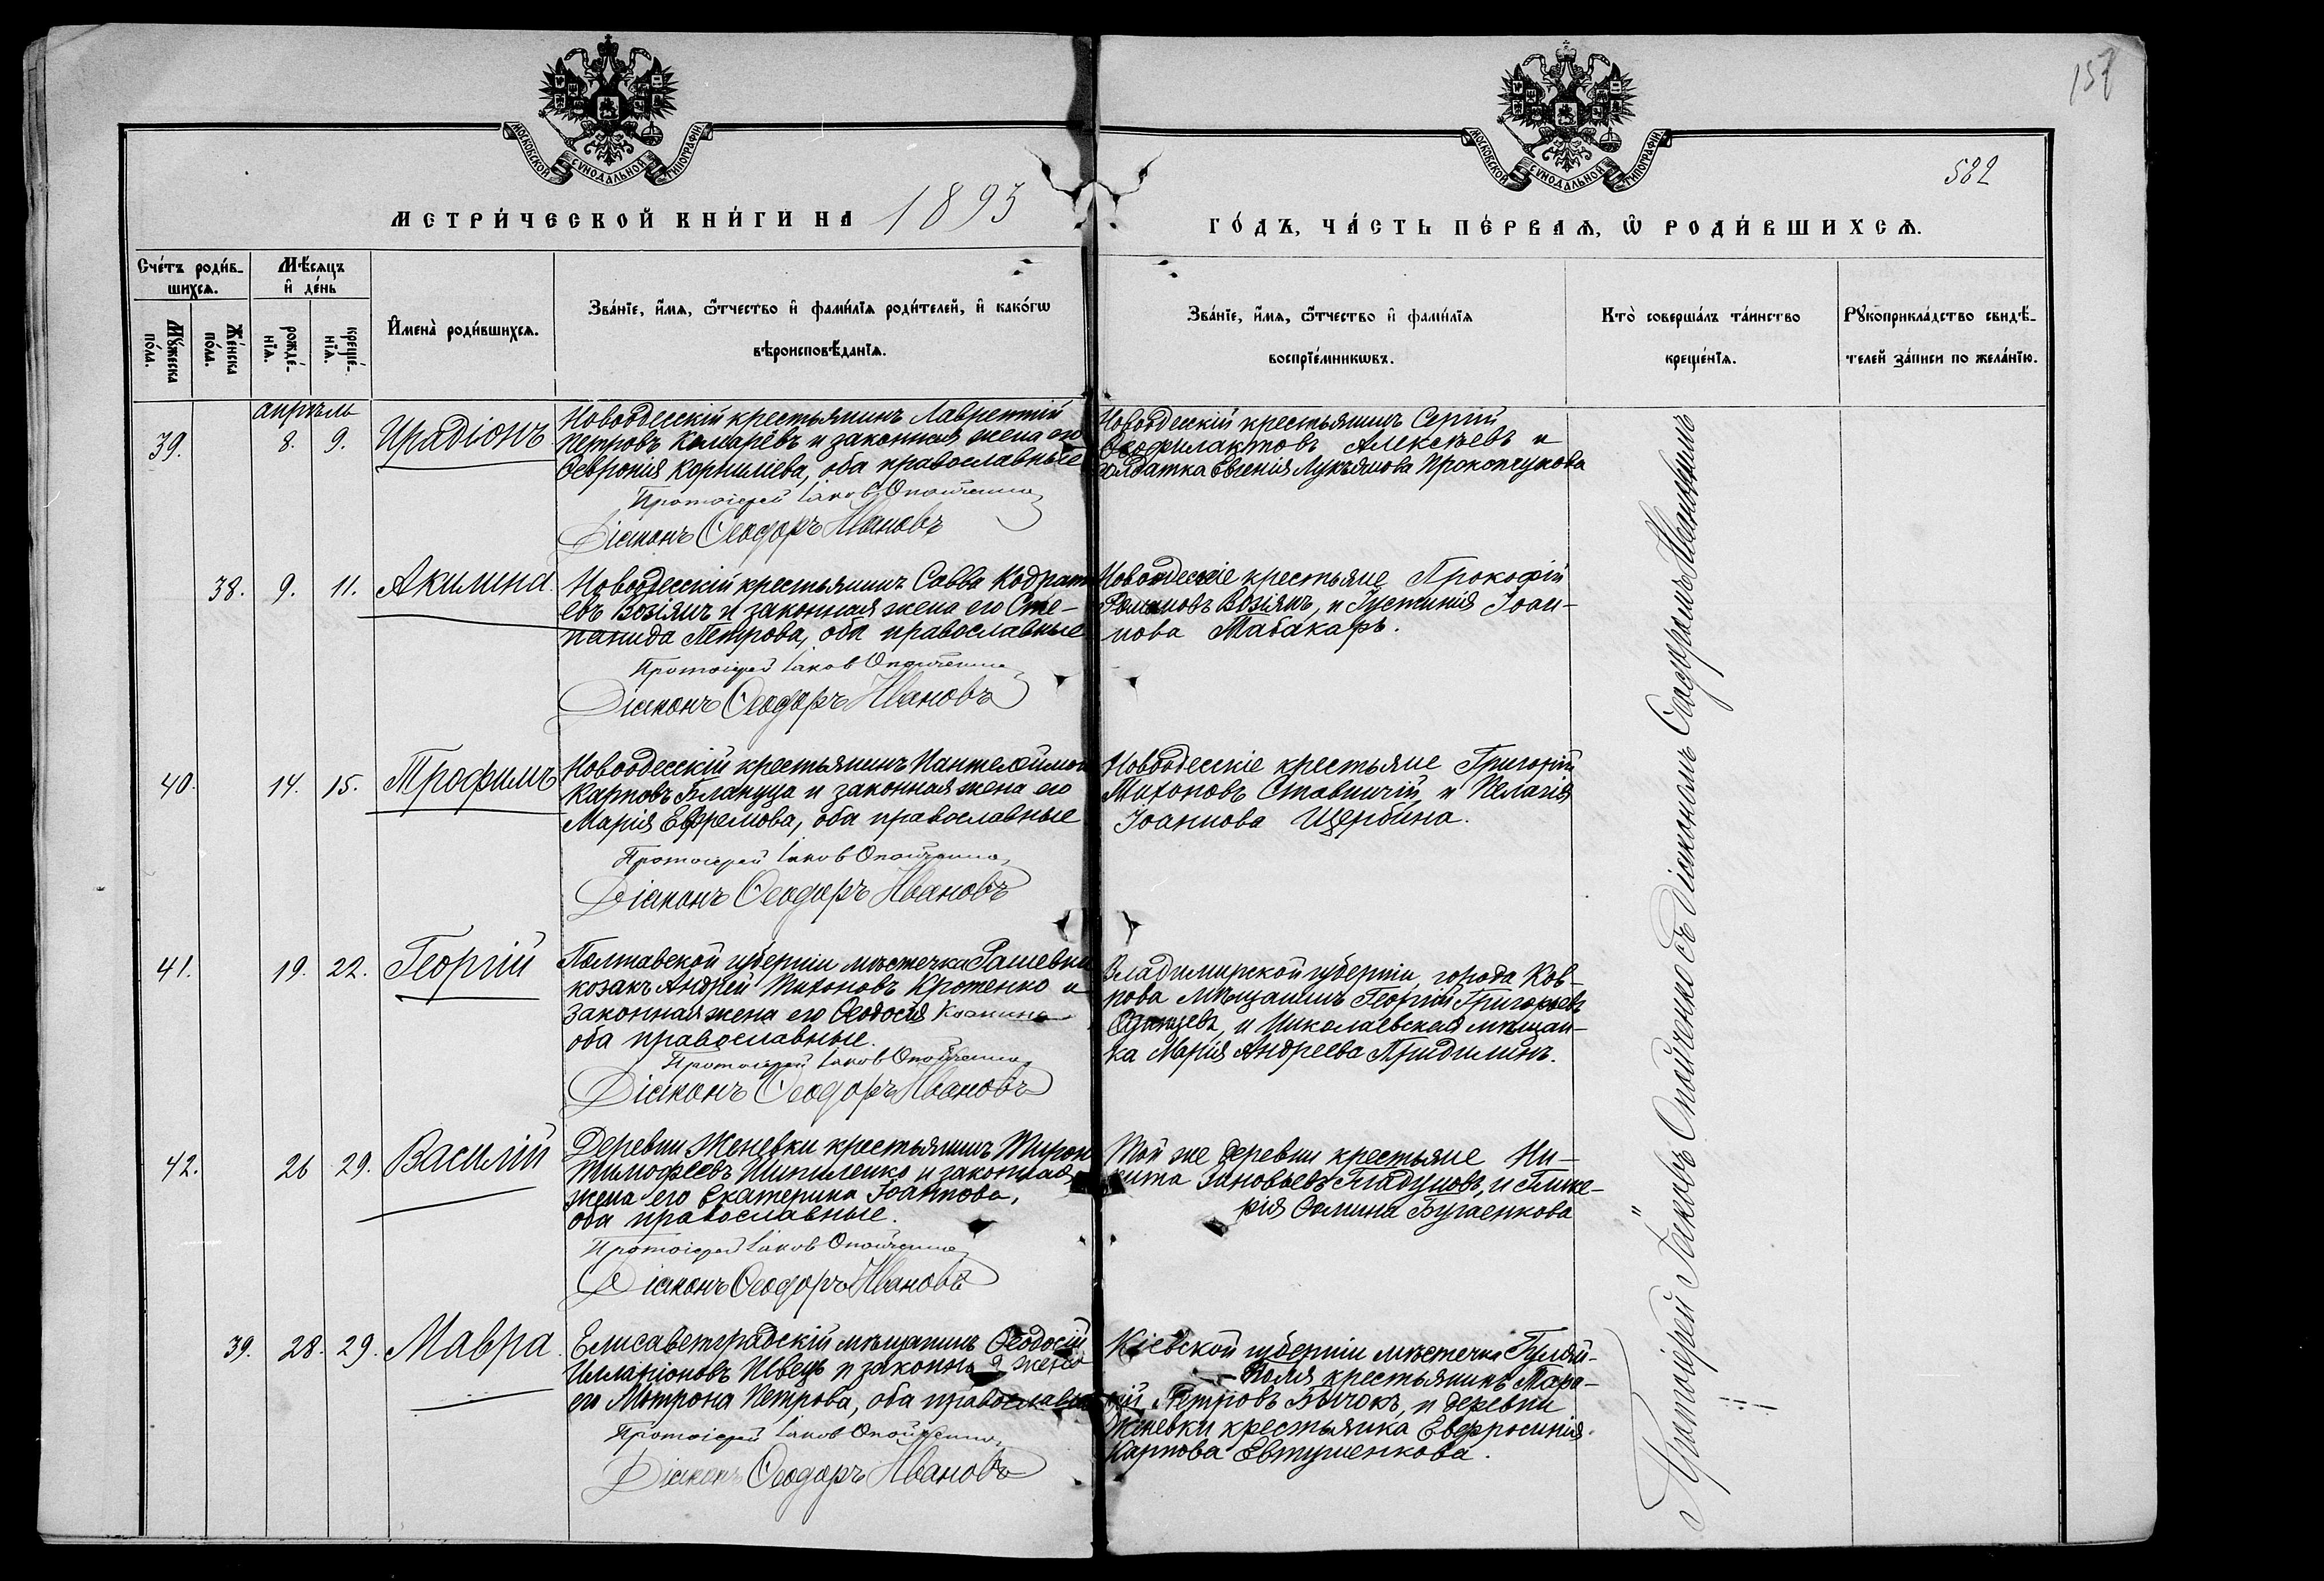 157
МОСКОВСКОЙ СѴНОДАЛЬНОЙ ТИПОГРАФІИ.
МОСКОВСКОЙ СѴНОДАЛЬНОЙ ТИПОГРАФІИ.
582
МЕТРИ́ЧЕСКОЙ КНИ́ГИ НА 1893
ГО́ДЪ, ЧА́СТЬ ПЕ́РВАѦ, Ѡ҆ РОДИ́ВШИХСѦ.
Сче́тъ роди́в-
шихсѧ.
Мѣ́сѧцъ
и҆ де́нь
Мꙋ́жеска
по́ла.
Же́нска
по́ла.
рожде́-
нїѧ.
креще́-
нїѧ.
И҆мена̀ роди́вшихсѧ.
Зва́нїе, и҆́мѧ, ѻ҆́тчество и҆ фами́лїѧ роди́телей, и҆ како́гѡ
вѣроисповѣ́данїѧ.
Зва́нїе, и҆́мѧ, ѻ҆́тчество и҆ фами́лїѧ
воспрїе́мникѡвъ.
Кто̀ соверша́лъ та́инство
креще́нїѧ.
Рꙋкоприкла́дство свидѣ́-
телей за́писи по жела́нїю.
апрѣль
39. 8. 9. Иродіонъ
Новоодесскій крестьянинъ Лаврентій
Петровъ Комарёвъ и законная жена его
Февронія Корнилiева, оба православные
Протоіерей Іаков Опойченко
Діаконъ Ѳеодоръ Ивановъ
Новоодесскій крестьянинъ Сергій
Ѳеофилактовъ Алексѣевъ и
солдатка Евгенія Лукьянова Прокопчукова
38. 9. 11. Акилина.
Новоодесскій крестьянинъ Савва Кодрать
евъ Возіянъ и законная жена его Сте-
панида Петрова, оба православные
Протоіерей Іаков Опойченко
Діаконъ Ѳеодоръ Ивановъ
Новоодесскіе крестьяне Прокофій
Романовъ Возіянъ, и Іустинія Іоан-
нова Мабакарь.
40. 14. 15. Трофимъ
Новоодесскій крестьянинъ Пантелеймон
Карповъ Блануца и законная жена его
Марія Ефремова, оба православные
Протоіерей Іаков Опойченко
Діаконъ Ѳеодоръ Ивановъ
Новоодесскіе крестьяне Григорій
Тихоновъ Ставничій и Пелагія
Іоаннова Щербина.
41. 19. 22. Георгій
Полтавской губерніи мѣстечка Рашевки
козакъ Андрей Тихоновъ Кротенко и
законная жена его Ѳеодосія Козмина
оба православные.
Протоіерей Іаков Опойченко
Діаконъ Ѳеодоръ Ивановъ
Владимирской губерніи, города Ков-
рова мѣщанинъ Георгій Григорьевъ
Одинцевъ, и Николаевская мѣщан-
ка Марія Андреева Придилинъ.
42. 26 29. Василій
Деревни Женевки крестьянинъ Мирон
Тимофеевъ Шипиленко и законная
жена его Екатерина Іоаннова,
оба православные.
Протоіерей Іаков Опойченко
Діаконъ Ѳеодоръ Ивановъ
Той же деревни крестьяне Ни-
кита Зиновьевъ Гладуновъ, и Глике-
рія Ѳомина Бугаенкова
39. 28. 29. Мавра.
Елисаветградскій мѣщанинъ Ѳеодосій
Илларіоновъ Швецъ и законная жена
его Мотрона Петрова, оба православн
Протоіерей Іаков Опойченко
Діаконъ Ѳеодоръ Ивановъ
Кіевской губерніи мѣстечка Гуляй-
Поля крестьянинъ Тара-
сій Петровъ Бычокъ, и деревни
Женевки крестьянка Евфросинія
Карпова Евтушенкова.
Протоіерей Іаковъ Опойченко съ Діакономъ Ѳеодоромъ Ивановымъ